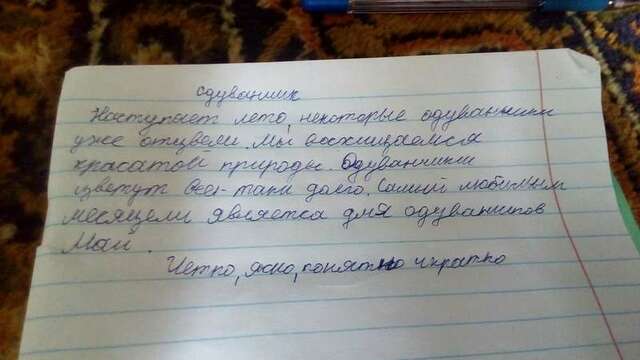 одуванчик
Наступает лето, некоторые одуванчики
уже отцвели. Мы восхищаемся
красатой природы. Одуванчики
цветут всё-таки долго. Самый любимым
месяцем является для одуванчиков
Май.
Четко, ясно, понятно и кратко